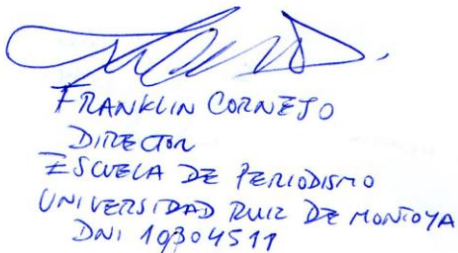 FRANKLIN CORNEJO
DIRECTOR
ESCUELA DE PERIODISMO
UNIVERSIDAD RUIZ DE MONTOYA
DNI 10304511